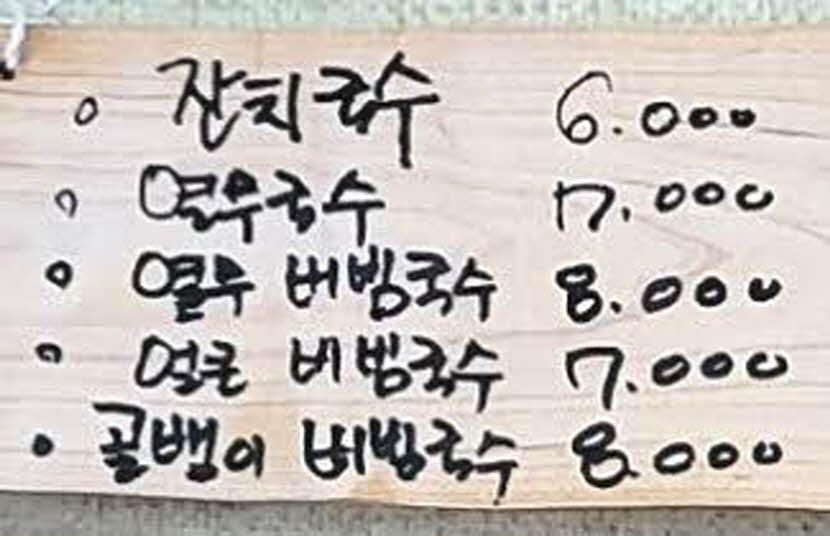 ◦ 잔치국수 6.000
◦ 열무국수 7.000
◦ 열무 비빔국수 8.000
◦ 얼큰 비빔국수 7.000
◦ 골뱅이 비빔국수 8.000